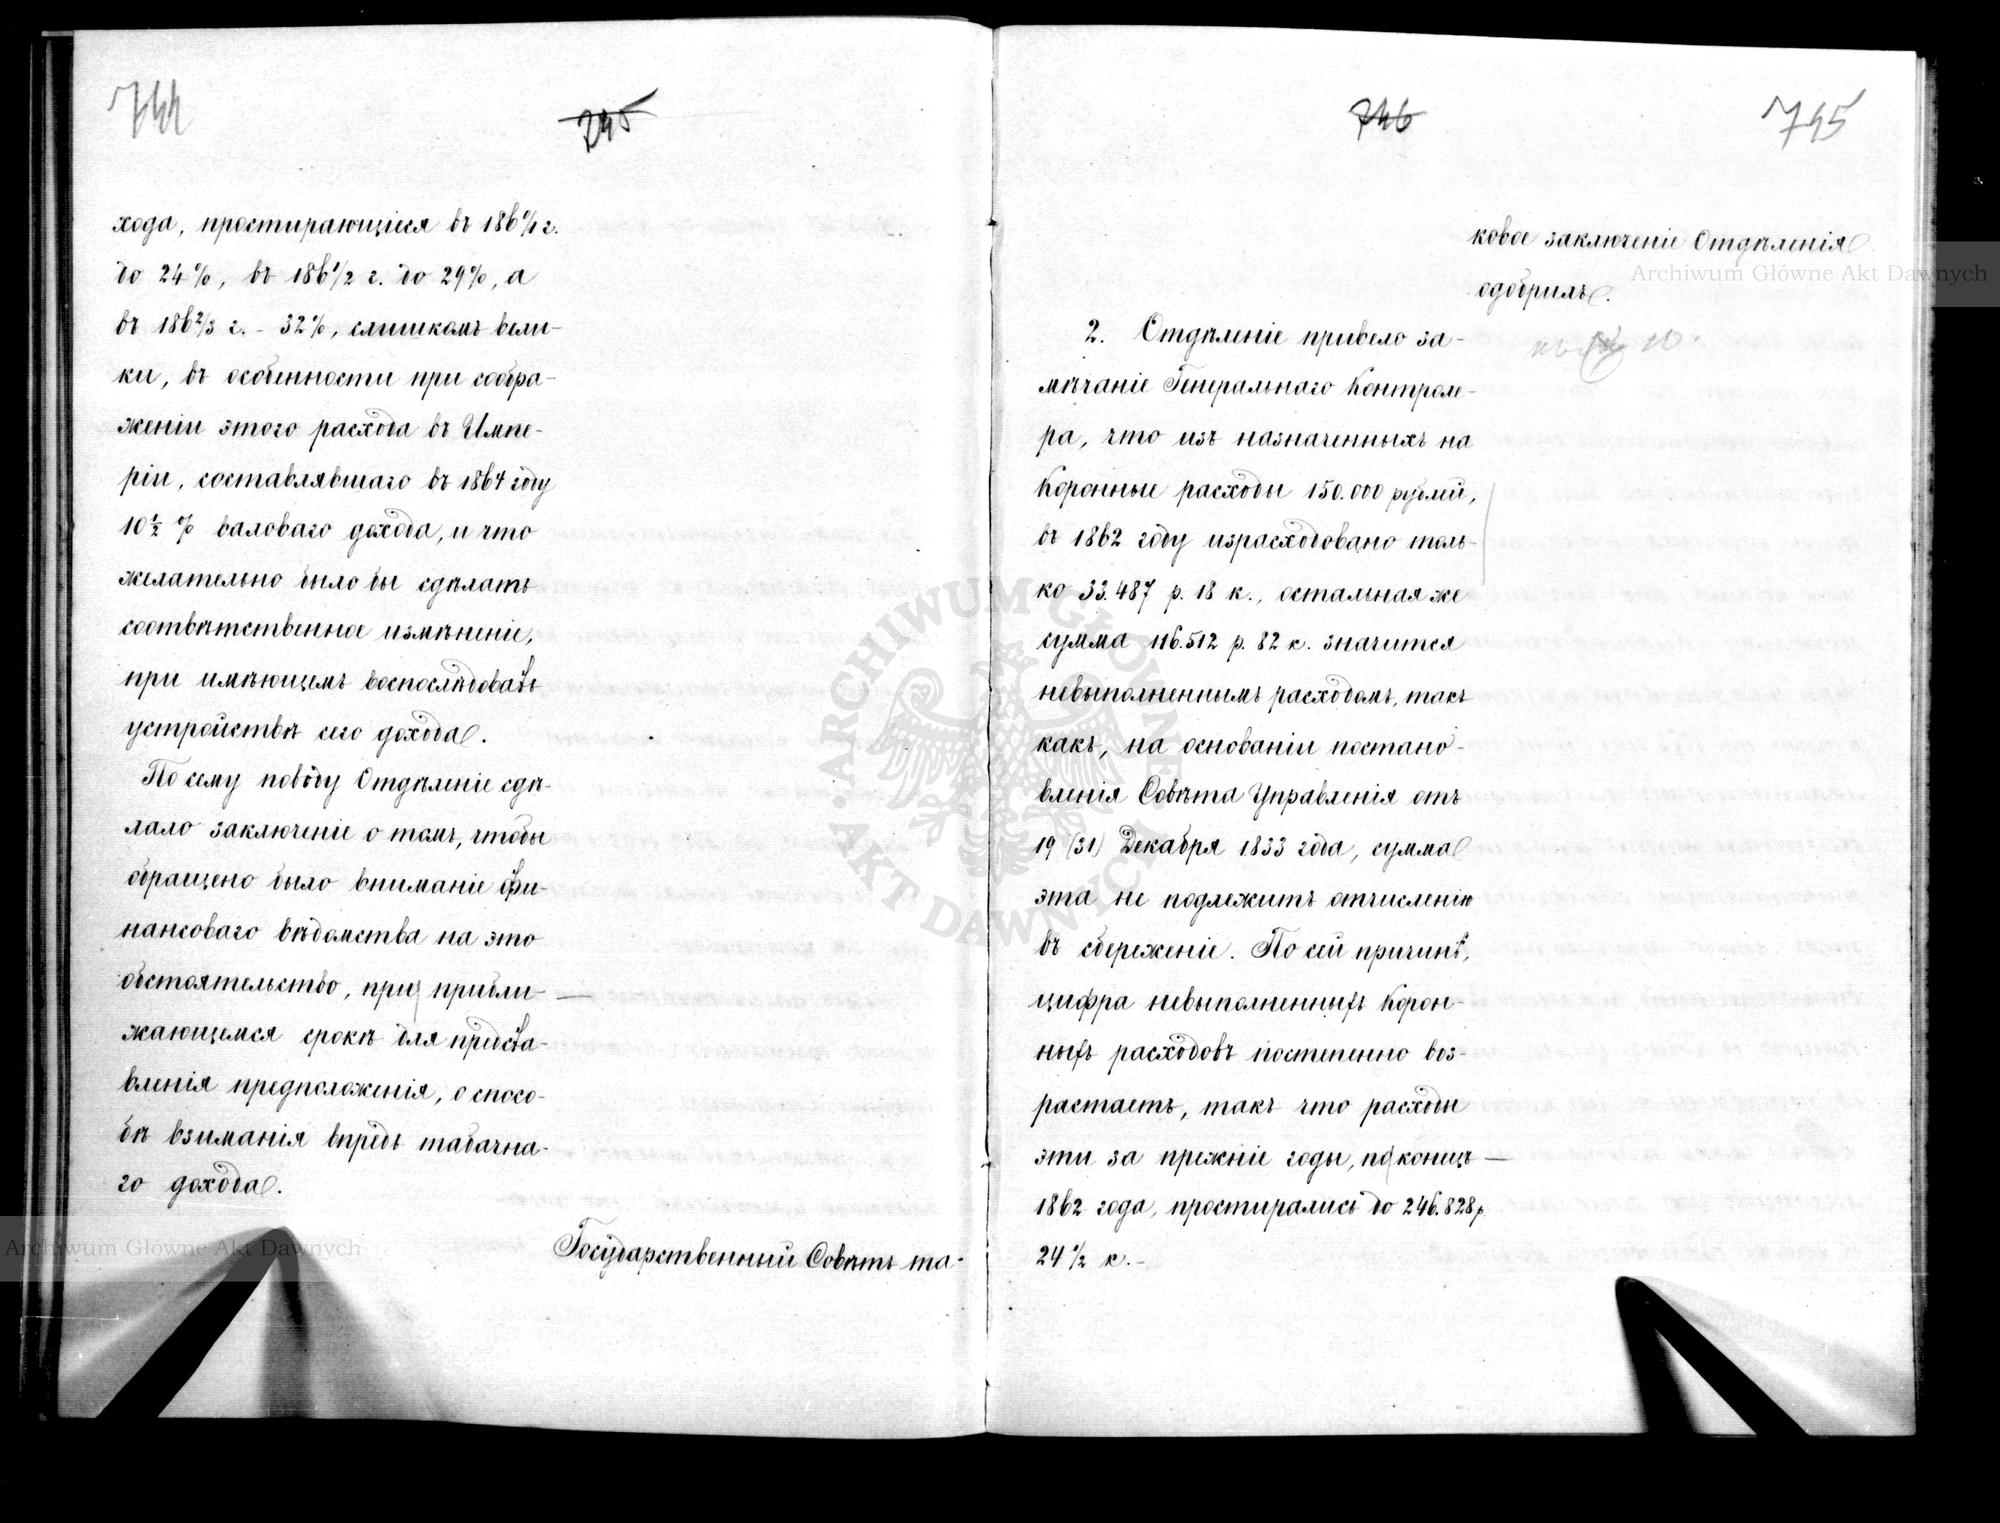 744
745
хода, простирающіеся въ 186 0/1 г.
до 24%, въ 186 1/2 г. до 29%, а
въ 186 2/3 г. - 32%, слишкомъ вели-
ки, въ особенности при сообра-
женіи этого расхода въ Импе-
ріи, составлявшаго въ 1864 году
10 1/2 % валоваго дохода, и что
желательно было бы сдѣлать
соотвѣтственное измѣненіе,
при имѣющемъ воспослѣдовать
устройствѣ сего дохода.
По сему поводу Отдѣленіе сдѣ-
лало заключеніе о томъ, чтобы
обращено было вниманіе фи-
нансоваго вѣдомства на это
обстоятельство, при прибли-
жающемся срокѣ для предста-
вленія предположенія, о спосо-
бѣ взиманія впредь табачна-
го дохода.
Государственный Совѣтъ та-
746
745
ковое заключеніе Отдѣленія
одобрилъ.
2. Отдѣленіе привело за-
мѣчаніе Генеральнаго Контроле-
ра, что изъ назначенныхъ на
Коронные расходы 150.000 рублей,
въ 1862 году израсходовано толь-
ко 33.487 р. 18 к., остальная же
сумма 116.512 р. 82 к. значится
невыполненнымъ расходомъ, такъ
какъ, на основаніи постано-
вленія Совѣта Управленія отъ
19 (31) Декабря 1833 года, сумма
эта не подлежитъ отчисленію
въ сбереженіе. По сей причинѣ,
цифра невыполненныхъ Корон-
ныхъ расходовъ постепенно воз-
растаетъ, такъ что расходы
эти за прежніе годы, по конецъ
1862 года, простирались до 246.828 р.
24 1/2 к. -
Archiwum Główne Akt Dawnych
Archiwum Główne Akt Dawnych
ARCHIWUM GŁÓWNE · AKT DAWNYCH ·